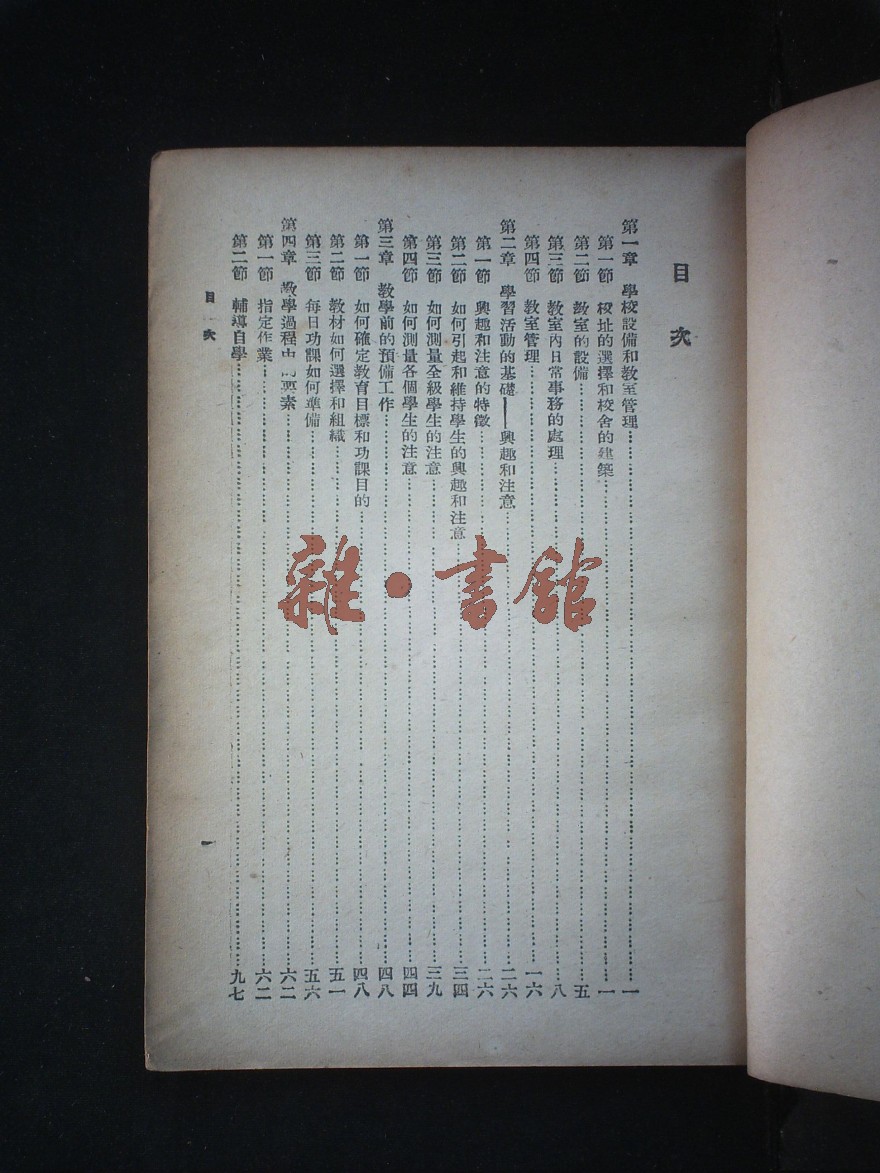 目次
第一章 學校設備和教室管理……一
第一節 校址的選擇和校舍的建築……一
第二節 教室的設備……五
第三節 教室內日常事務的處理……八
第四節 教室管理……一六
第二章 學習活動的基礎——興趣和注意……二六
第一節 興趣和注意的特徵……二六
第二節 如何引起和維持學生的興趣和注意……三四
第三節 如何測量全級學生的注意……三九
第四節 如何測量各個學生的注意……四四
第三章 教學前的預備工作……四八
第一節 如何確定教育目標和功課目的……四八
第二節 教材如何選擇和組織……五一
第三節 每日功課如何準備……五六
第四章 教學過程中的要素……六二
第一節 指定作業……六二
第二節 輔導自學……九七
目次
一
雜·書館